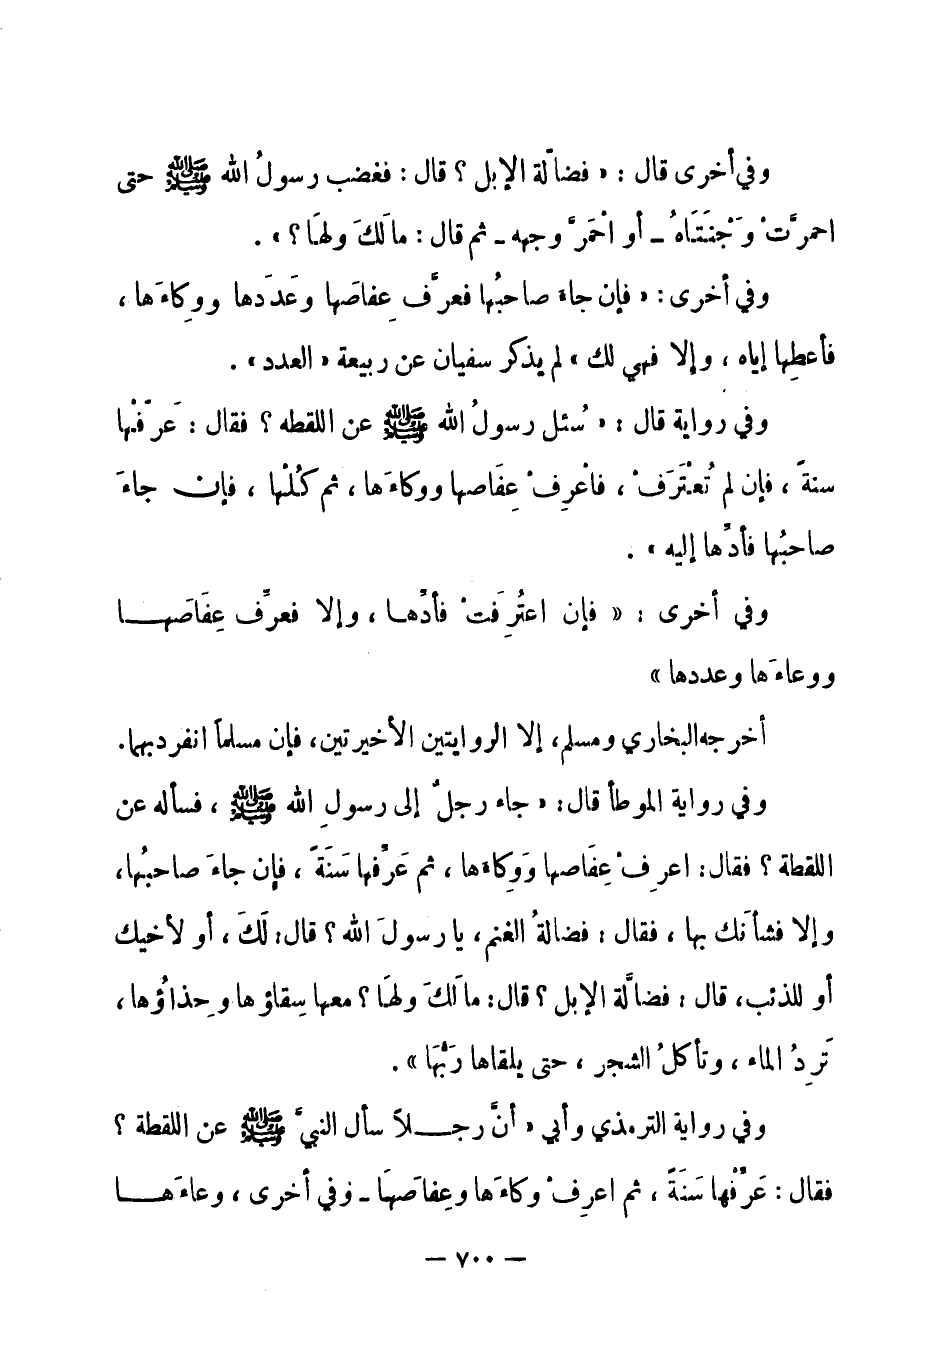 وفي أخرى قال : « فضالّة الإبل ؟ قال : فغضب رسولُ الله ﷺ حتى
احمرَّتْ وَجْنَتَاهُ ــ أو احْمَرَّ وجهه ــ ثم قال : مالَكَ ولهَا ؟ » .
وفي أخرى : « فإن جاءَ صاحبُها فعرَّف عِفاصَها وعَدَدها ووِكاءَها ،
فأعطِها إياه ، وإلا فهي لك » لم يذكر سفيان عن ربيعة « العدد » .
وفي رواية قال : « سُئل رسولُ الله ﷺ عن اللقطه ؟ فقال : عَرِّفْها
سنةً ، فإن لم تُعْتَرَفْ ، فاعْرِفْ عِفَاصها ووكاءَها ، ثم كُلْها ، فإن جاءَ
صاحبُها فأدِّها إليه » .
وفي أخرى : « فإن اعتُرِفَتْ فأدِّها ، وإلا فعرِّف عِفَاصَها
ووعاءَها وعددها »
أخرجه البخاري ومسلم، إلا الروايتين الأخيرتين، فإن مسلماً انفرد بهما.
وفي رواية الموطأ قال: « جاء رجلٌ إلى رسولِ الله ﷺ ، فسأله عن
اللقطة ؟ فقال: اعرِفْ عِفَاصها وَوِكاءَها ، ثم عَرِّفها سَنَةً ، فإن جاءَ صاحبُها،
وإلا فشأنَك بها ، فقال : فضالةُ الغنم، يا رسولَ الله ؟ قال: لَكَ ، أو لأخيك
أو للذئب، قال : فضالَّة الإبل ؟ قال: مالَكَ ولهَا ؟ معها سِقاؤها وحِذاؤُها ،
تَرِدُ الماء ، وتأكلُ الشجر ، حتى يلقاها رَبُّهَا » .
وفي رواية الترمذي وأبي « أنَّ رجلاً سأل النبيَّ ﷺ عن اللقطة ؟
فقال : عَرِّفْها سَنَةً ، ثم اعرِفْ وكاءَها وعِفاصَهَا ــ وفي أخرى ، وعاءَها
— ٧٠٠ —